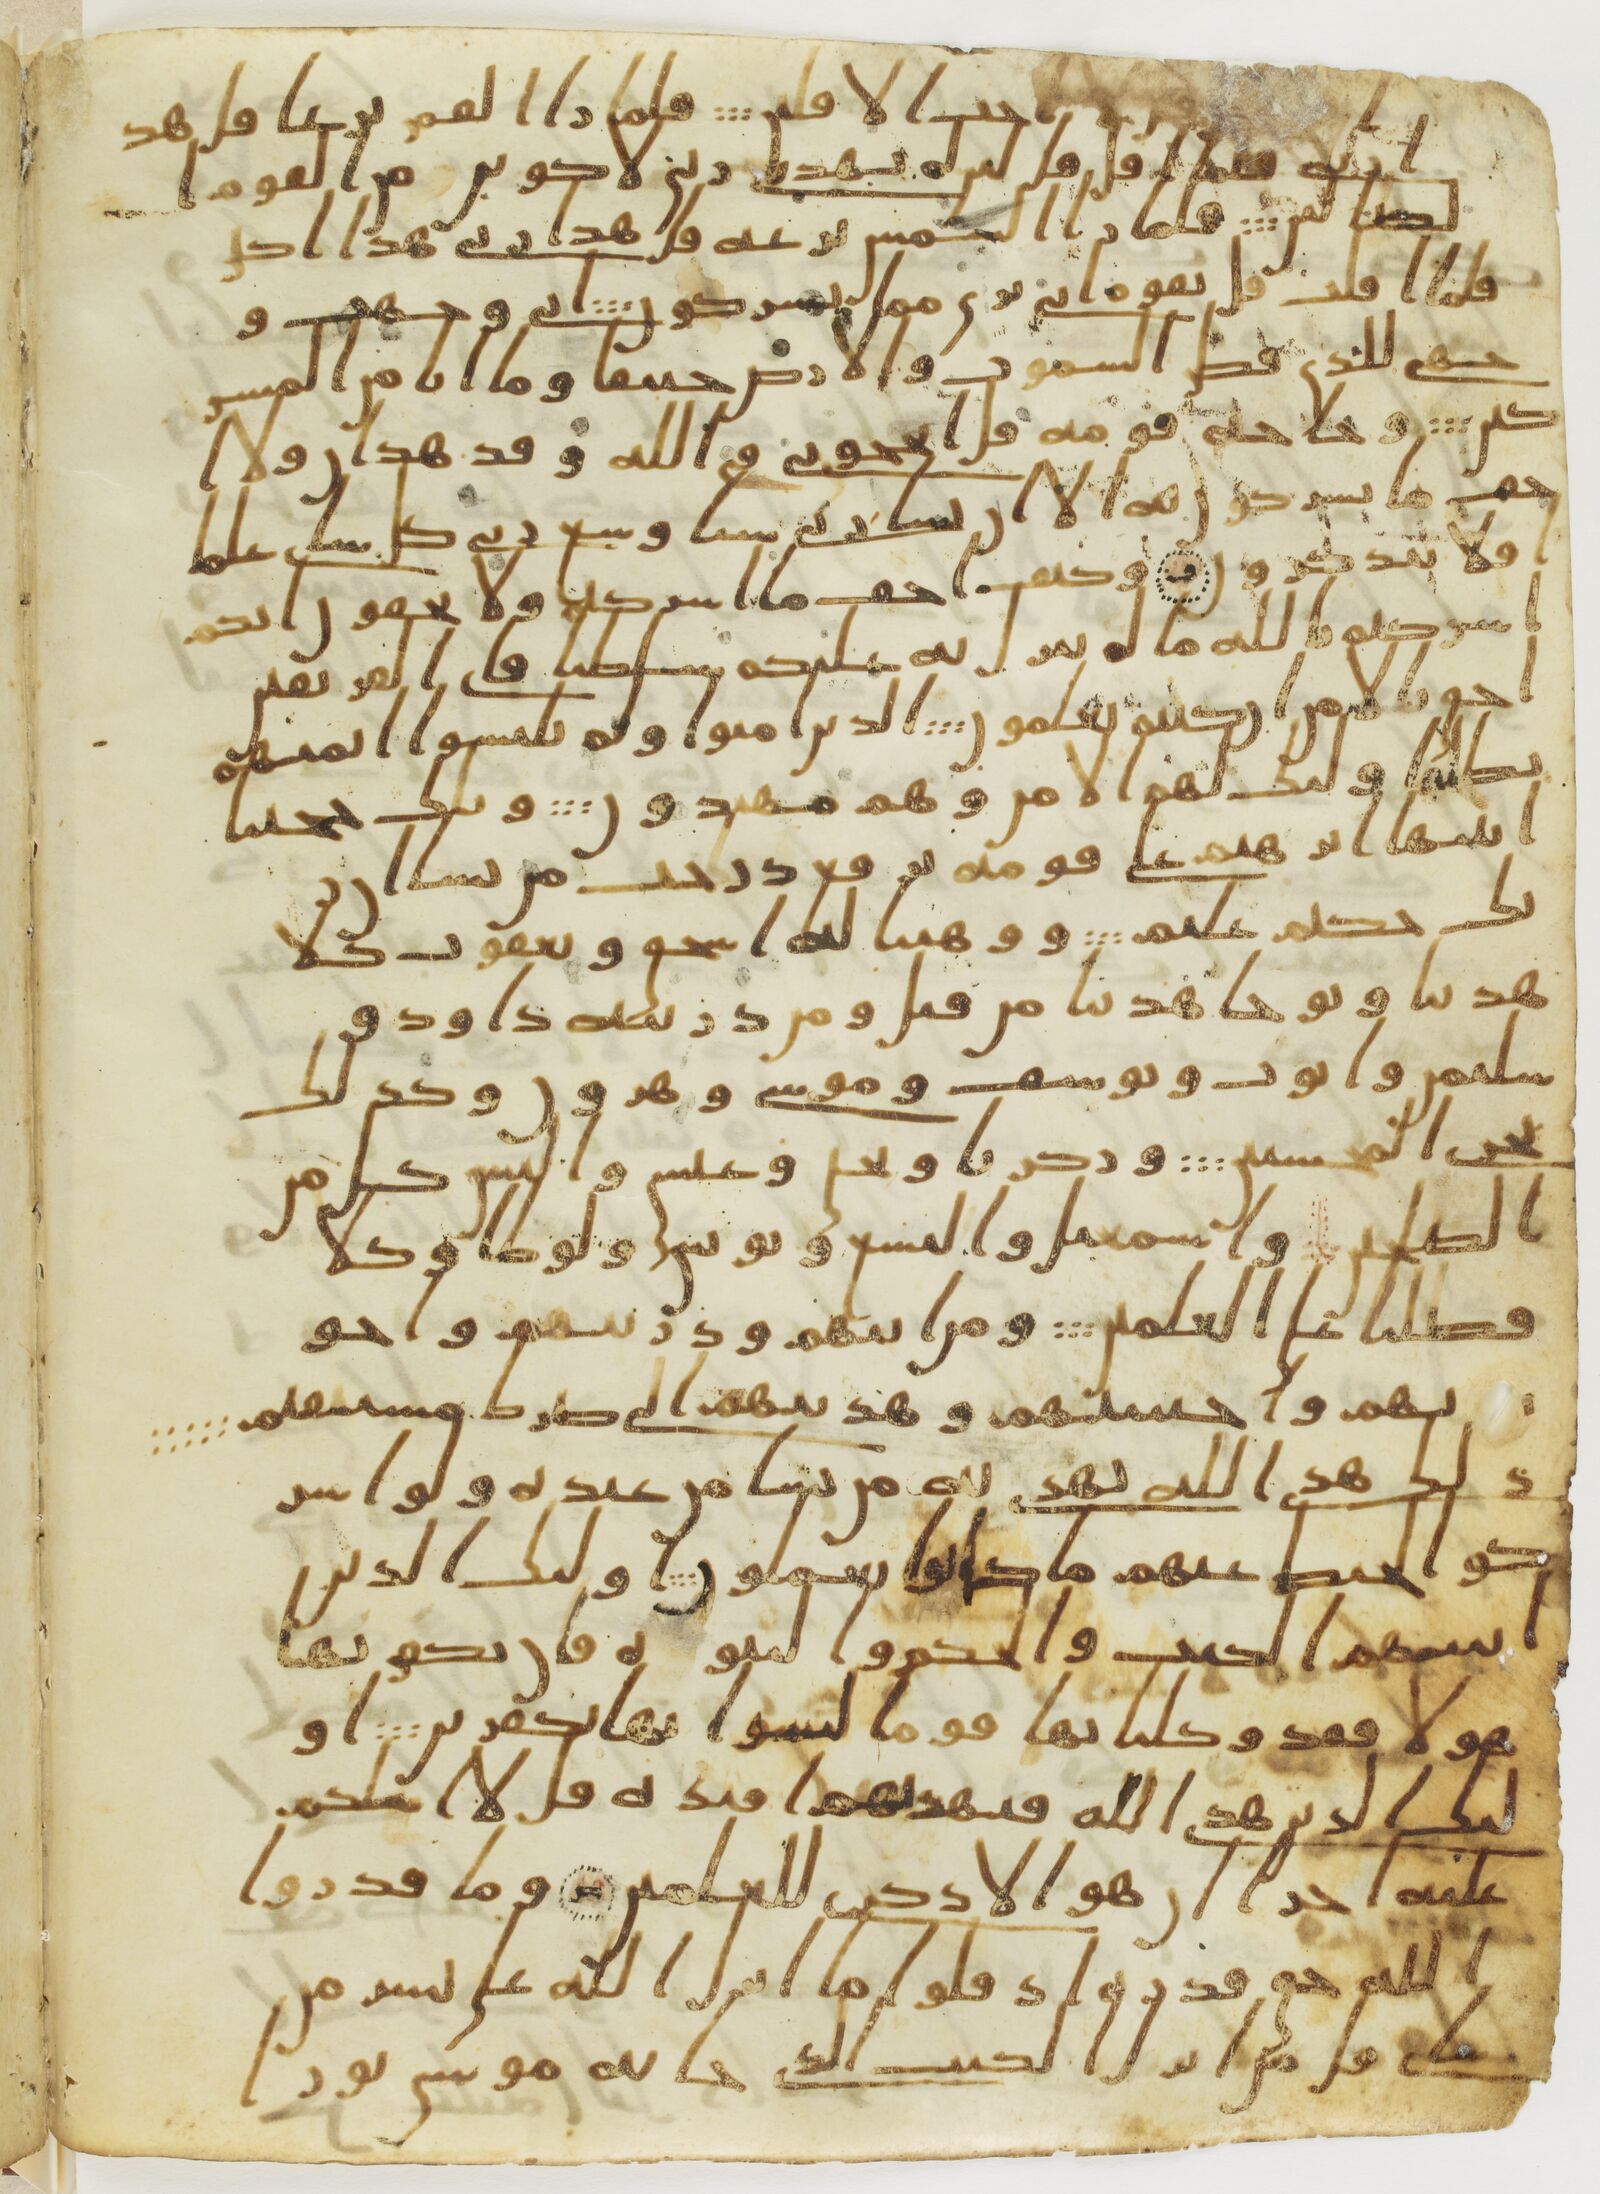 احب الافلين فلما را القمر بزغا قل هذ
ا ربي فلما افل قل لين لم يهدني ربي لاكونن من القوم ا
لضالين فلما را الشمس بزغه قل هذا ربي هذا اكبر
فلما افلت قل يقوم اني بري مما تشركون اني وجهت و
جهي للذي فطر السموت والارض حنيفا وما انا من المشر
كين وحاجه قومه قل اتحجوني في الله وقد هدان ولا ا
خف ما تشركون به الا ان يشا ربي شيا وسع ربي كل شي علما ا
فلا تتذكرون وكيف اخف ما اشركتم ولا تخفون انكم
اشركتم بالله ما لم ينزل به عليكم سلطنا فاي الفريقين
احق بالامن ان كنتم تعلمون الذين امنوا ولم يلبسوا ايمنهم
بظلم اوليك لهم الامن وهم مهتدون وتلك حجتنا
اتينها ابرهيم على قومه نرفع درجت من نشا ان ر
بك حكيم عليم ووهبنا له اسحق ويعقوب كلا
هدينا ونوحا هدينا من قبل ومن ذريته داود و
سليمن وايوب ويوسف وموسى وهرون وكذلك
نجزي المحسنين وزكريا ويحيى وعيسى والياس كل من
الصلحين واسمعيل واليسع ويونس ولوطا وكلا
فضلنا على العلمين ومن ابيهم وذريتهم واخو
نهم واجتبينهم وهدينهم الى صرط مستقيم
ذلك هدى الله يهدي به من يشا من عبده ولو اشر
كوا لحبط عنهم ما كانوا يعملون اوليك الذين
اتينهم الكتب والحكم والنبوه فان يكفر بها
هولا فقد وكلنا بها قوما ليسوا بها بكفرين او
ليك الذين هدى الله فبهديهم اقتده قل لا اسلكم
عليه اجرا ان هو الا ذكرى للعلمين وما قدروا
الله حق قدره اذ قلوا ما انزل الله على بشر من
شي قل من انزل الكتب الذي جا به موسى نورا